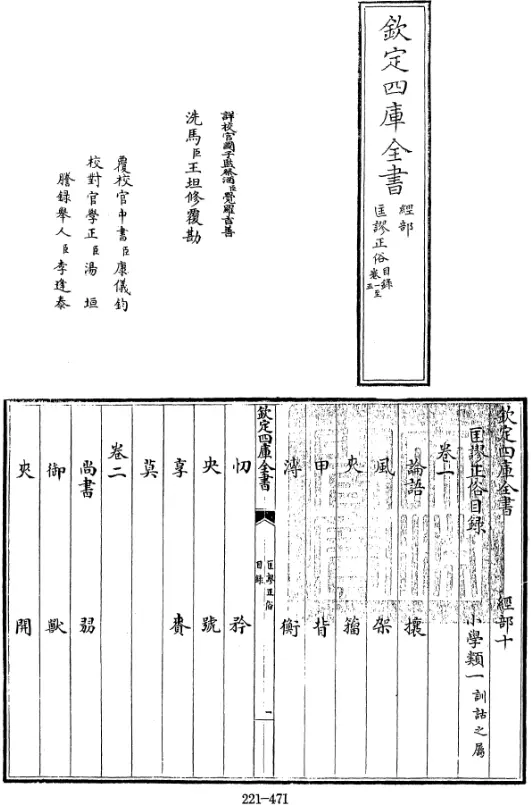 欽定四庫全書
經部
匡謬正俗目錄
卷一至五
詳校官國子監祭酒臣覺羅吉善
洗馬臣王坦修覆勘
覆校官中書臣康儀鈞
校對官學正臣湯垣
謄錄舉人臣李逢泰
欽定四庫全書 經部十
匡謬正俗目錄 小學類一訓詁之屬
卷一
論語 攘
風 架
夾 籀
甲 背
溥 衡
欽定四庫全書
匡謬正俗
目錄
一
忉 矜
央 號
享 賚
莫
卷二
尚書 弼
御 獸
夾 開
221-471